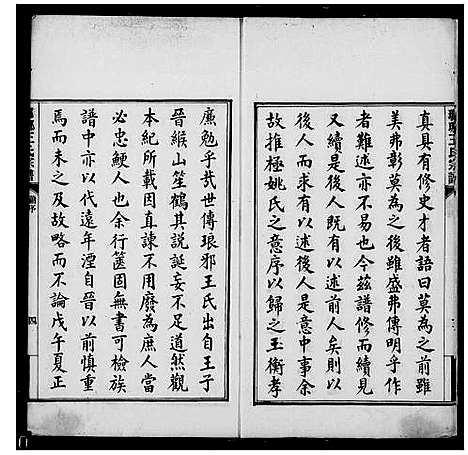 真具有修史才者語曰莫為之前雖
美弗彰莫為之後雖盛弗傳明乎作
者難述亦不易也今茲譜修而續見
又續是後人既有以述前人矣則以
後人而有以述後人是意中事余
故推極姚氏之意序以歸之玉衡孝
廉勉乎哉世傳琅邪王氏出自王子
晉緱山笙鶴其說誕妄不足道然觀
本紀所載因直諫不用廢為庶人當
必忠鯁人也余行篋固無書可檢族
譜中亦以代遠年湮自晉以前慎重
焉而未之及故略而不論戊午夏正
王氏宗譜
序
四